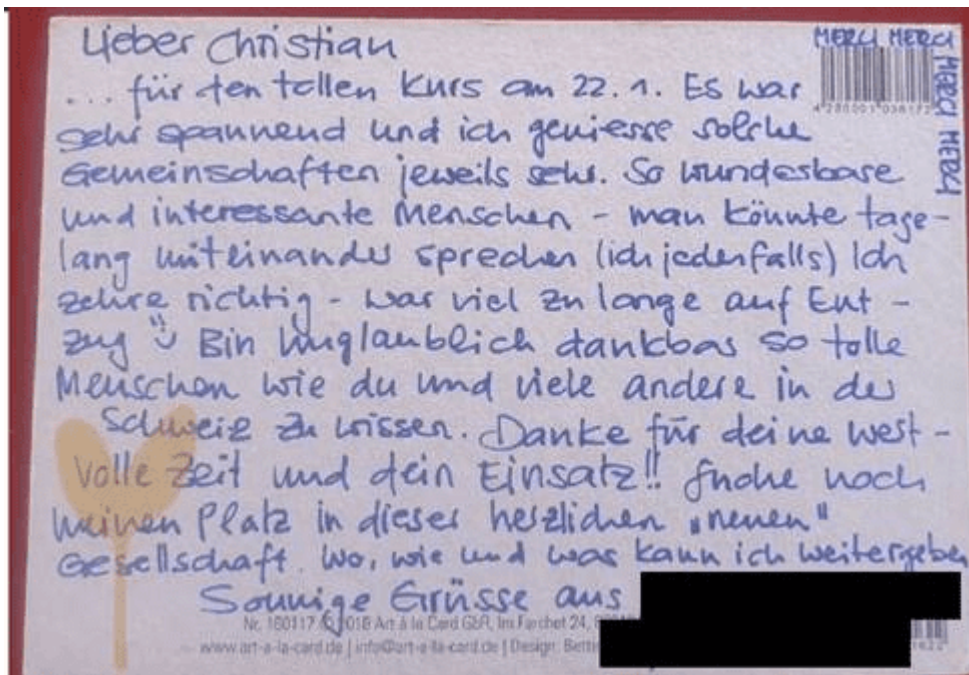 Lieber Christian
MERCI MERCI
MERCI MERCI
... für den tollen Kurs am 22.1. Es war
sehr spannend und ich geniesse solche
Gemeinschaften jeweils sehr. So wunderbare
und interessante Menschen - man könnte tage-
lang miteinander sprechen (ich jedenfalls) Ich
zehre richtig - war viel zu lange auf Ent-
zug Bin unglaublich dankbar so tolle
Menschen wie du und viele andere in der
Schweiz zu wissen. Danke für deine wert-
volle Zeit und dein Einsatz!! Suche noch
meinen Platz in dieser herzlichen „neuen"
Gesellschaft. Wo, wie und was kann ich weitergeben
Sonnige Grüsse aus
Nr. 160117 / © 2018 Art à la Card GbR, Im Farchet 24,
www.art-a-la-card.de | info@art-a-la-card.de | Design: